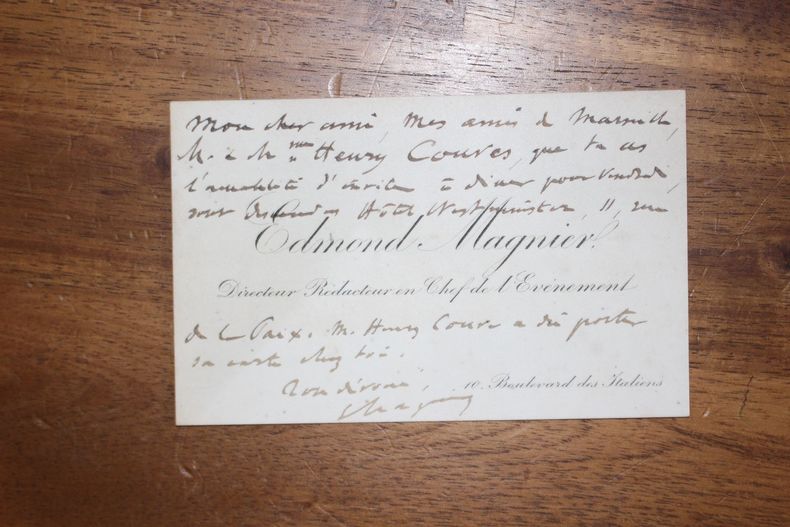 Mon cher ami, Mes amis de Marseille,
M. et Mme Henry Couves, que tu as
l'amabilité d'inviter à diner pour Vendredi,
sont descendus Hôtel Westminster, 11, rue
Edmond Magnier.
Directeur Rédacteur en Chef de l'Evénement
de la Paix. M. Henry Couve a dû porter
sa carte chez toi.
Ton dévoué,
10. Boulevard des Italiens
EMagnier